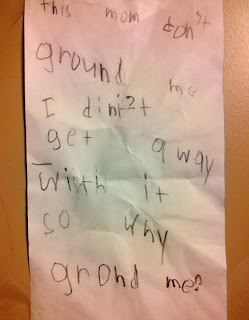 this mom don't
ground me
I dini2t
get away
with it
so why
grond me?